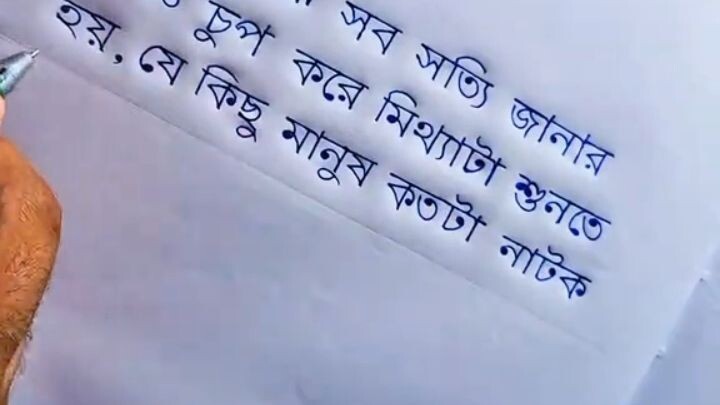 সব সত্যি জানার
চুপ করে মিথ্যাটা শুনতে
হয়, যে কিছু মানুষ কতটা নাটক